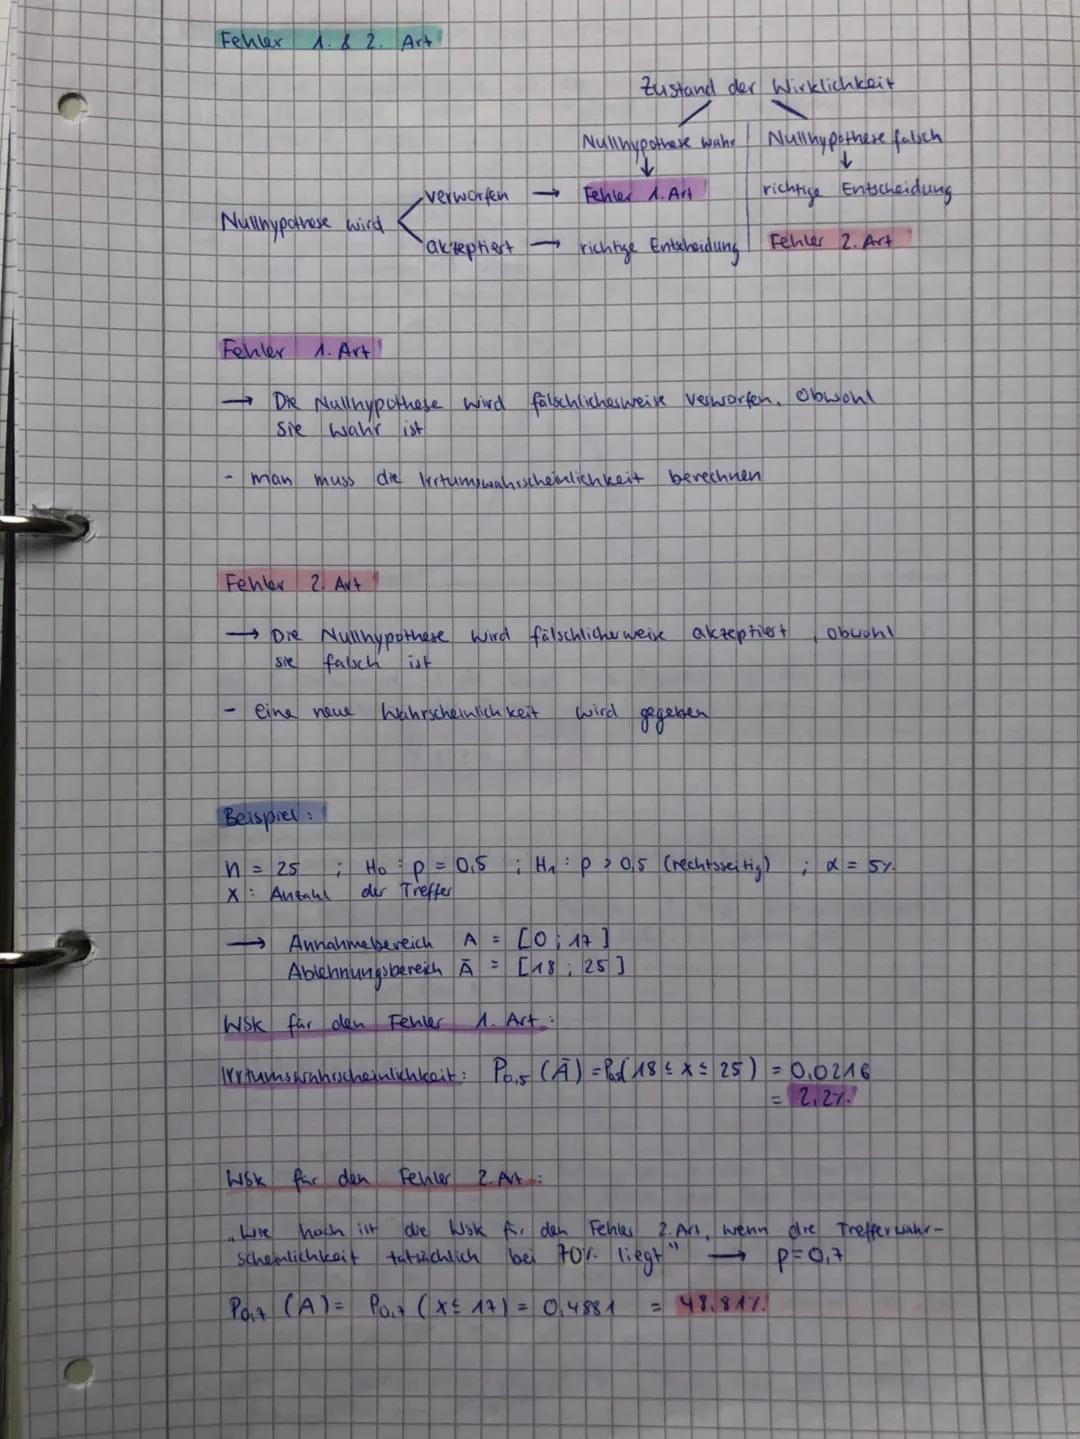 Fehler 1. & 2. Art
Zustand der Wirklichkeit
Nullhypothese wahr Nullhypothese falsch
verworfen → Fehler 1. Art richtige Entscheidung
Nullhypothese wird
akzeptiert → richtige Entscheidung Fehler 2. Art
Fehler 1. Art
→ Die Nullhypothese wird fälschlicherweise verworfen, obwohl
sie wahr ist
- man muss die Irrtumswahrscheinlichkeit berechnen
Fehler 2. Art
→ Die Nullhypothese wird fälschlicherweise akzeptiert, obwohl
sie falsch ist
- eine neue Wahrscheinlichkeit wird gegeben
Beispiel:
n = 25 ; H₀ : p = 0,5 ; H₁ : p > 0,5 (rechtsseitig) ; α = 5%
X : Anzahl der Treffer
→ Annahmebereich A = [0 ; 17]
Ablehnungsbereich Ā = [18 ; 25]
WSK für den Fehler 1. Art :
Irrtumswahrscheinlichkeit: P₀,₅ (Ā) = P₀,₅ (18 ≤ X ≤ 25) = 0,0216
= 2,2%
WSK für den Fehler 2. Art :
„Wie hoch ist die Wsk für den Fehler 2. Art, wenn die Trefferwahr-
scheinlichkeit tatsächlich bei 70% liegt" → p=0,7
P₀,₇ (A) = P₀,₇ (X ≤ 17) = 0,4881 = 48,81%